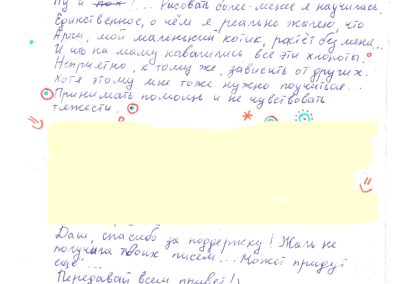 Ну и ... Рисовать более-менее я научилась.
Единственное, о чём я реально жалею, что
Арти, мой маленький котик, растёт без меня...
И что на маму навалились все эти хлопоты.
Неприятно, к тому же, зависить от других.
Хотя этому мне тоже нужно поучиться...
Принимать помощь и не чувствовать
тяжести.
Даш, спасибо за поддержку! Жаль не
получила твоих писем... Может придут
ещё...
Передавай всем привет!